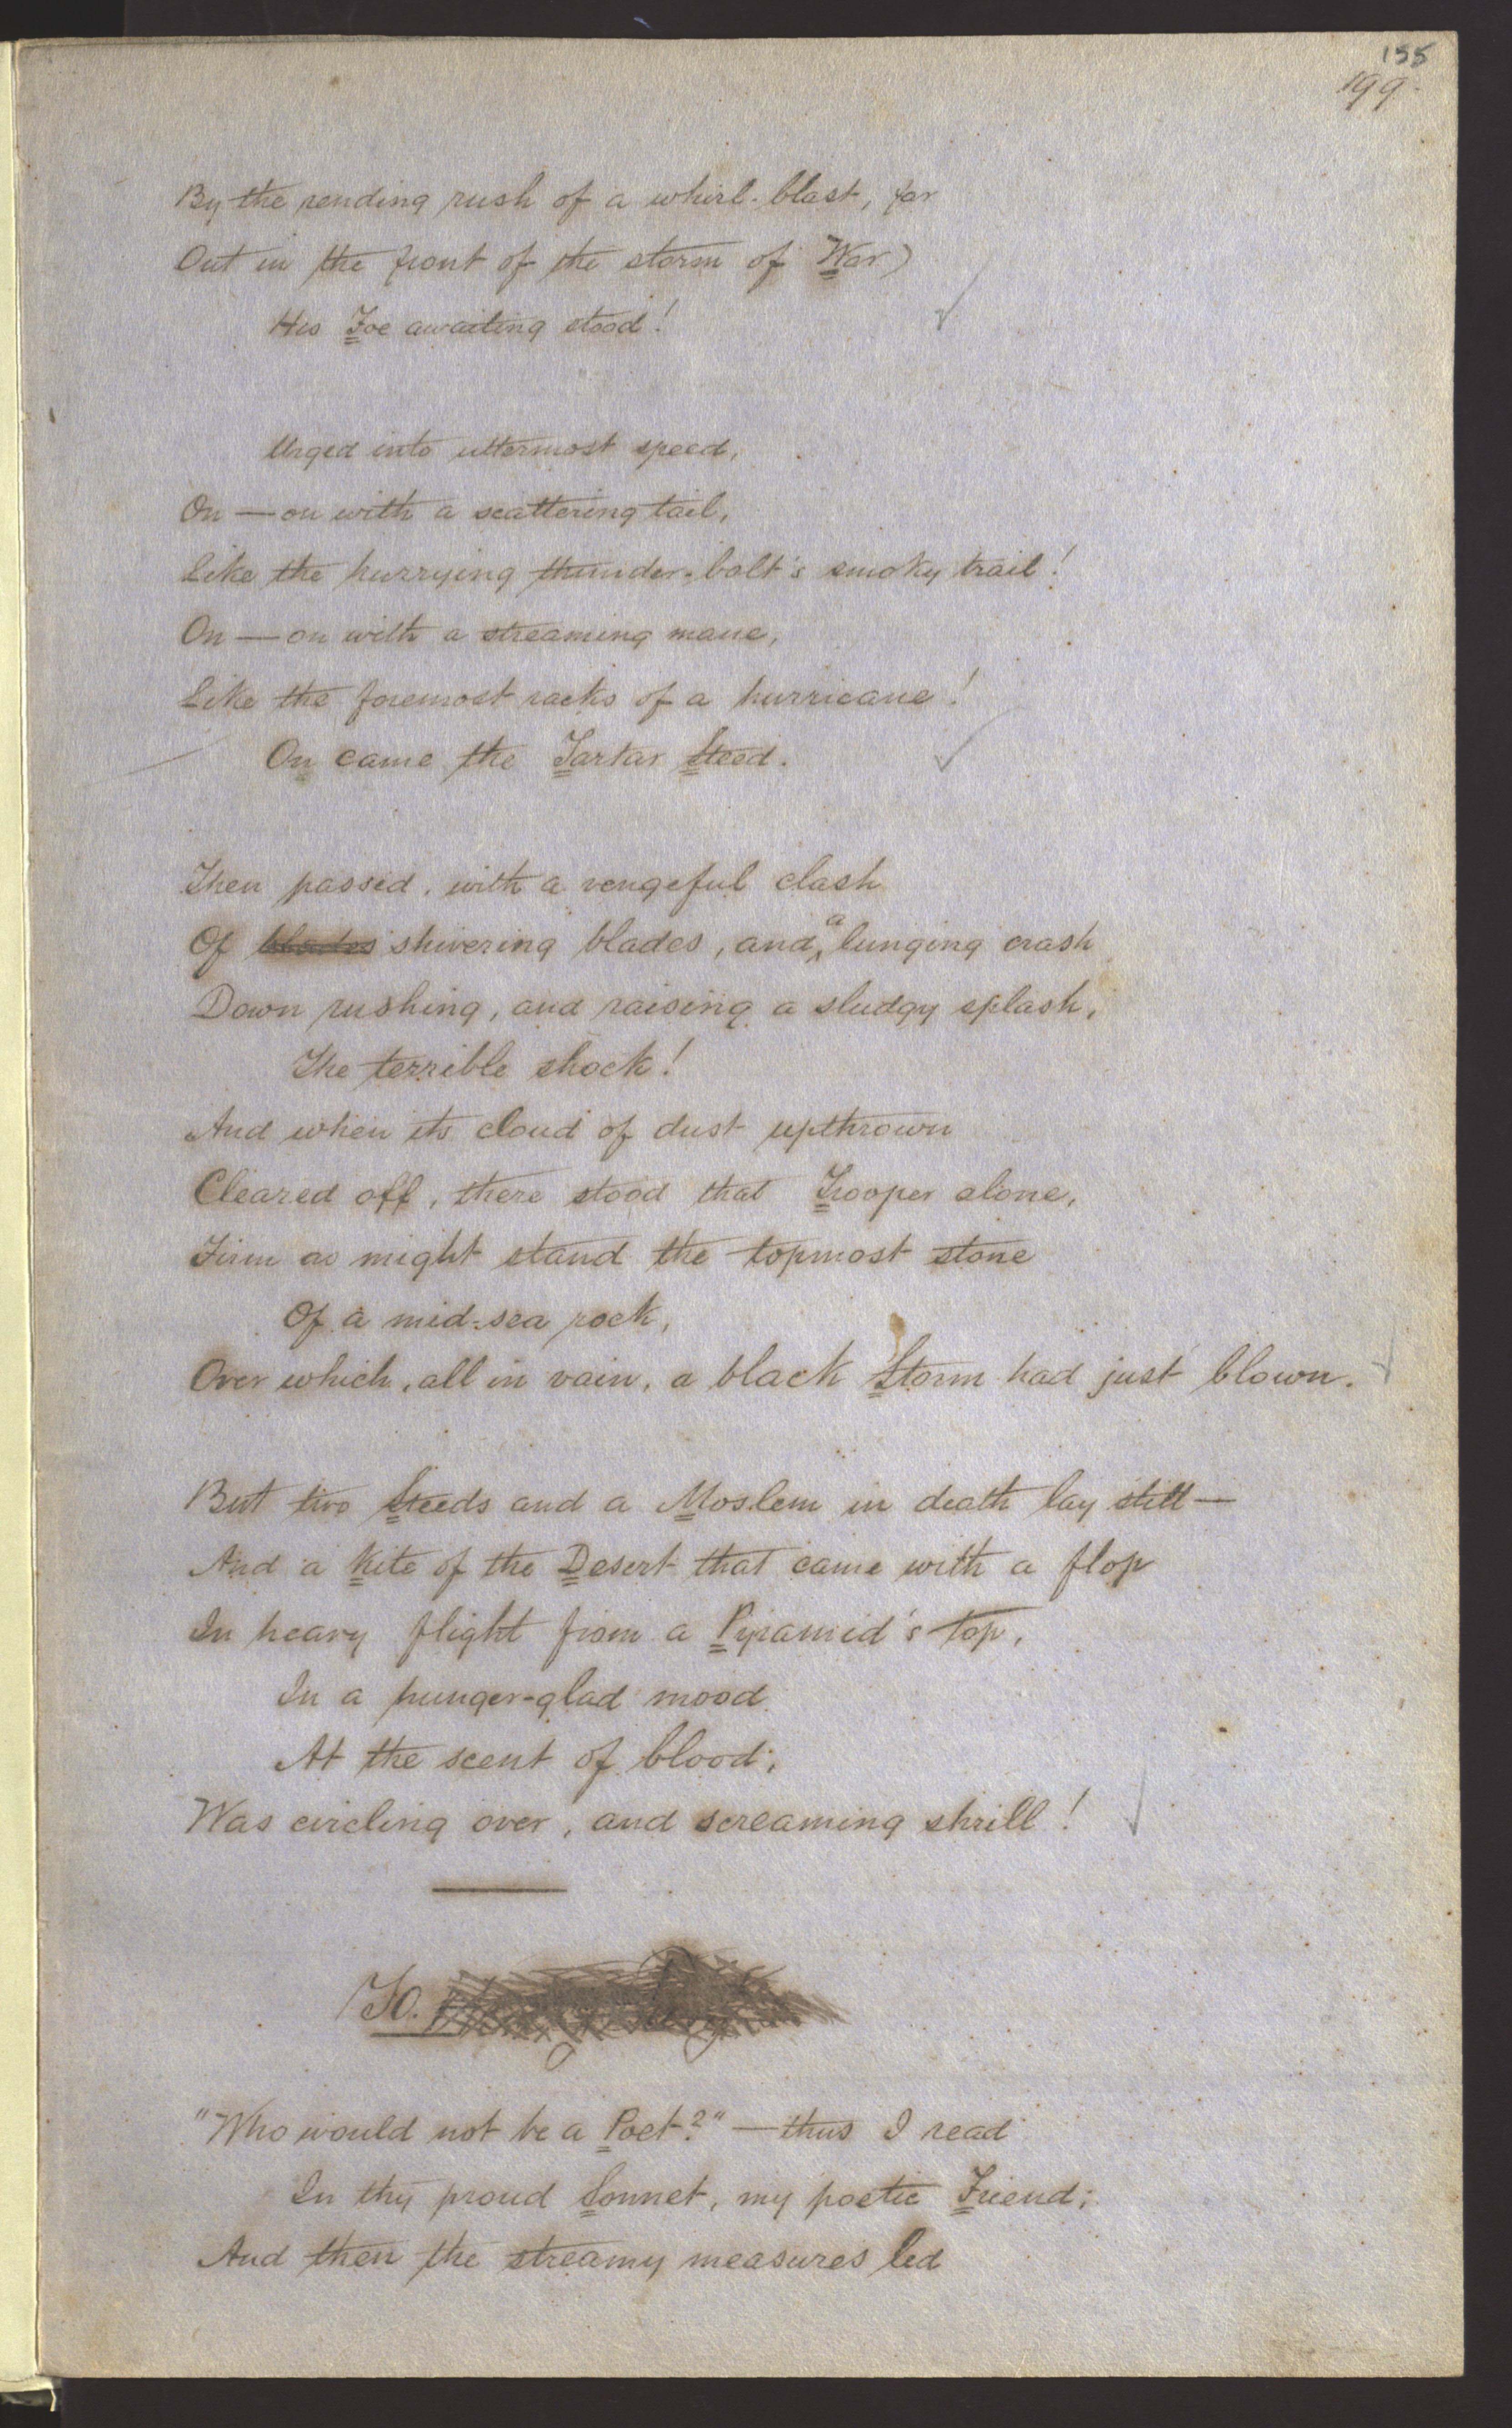 155
199.
By the rending rush of a whirl-blast, far
Out in the front of the storm of War)
His Foe awaiting stood!
Urged into uttermost speed,
On — on with a scattering tail,
Like the hurrying thunder-bolt's smoky trail!
On — on with a streaming mane,
Like the foremost racks of a hurricane!
On came the Tartar Steed.
Then passed, with a vengeful clash
Of blades shivering blades, and a lunging crash
Down rushing, and raising a sludgy splash,
The terrible shock!
And when its cloud of dust upthrown
Cleared off, there stood that Trooper alone,
Firm as might stand the topmost stone
Of a mid-sea rock,
Over which, all in vain, a black Storm had just blown.
But two Steeds and a Moslem in death lay still —
And a Kite of the Desert that came with a flop
In heavy flight from a Pyramid's top,
In a hunger-glad mood
At the scent of blood,
Was circling over, and screaming shrill!
To.
"Who would not be a Poet?" — thus I read
In thy proud Sonnet, my poetic Friend;
And then the streamy measures led